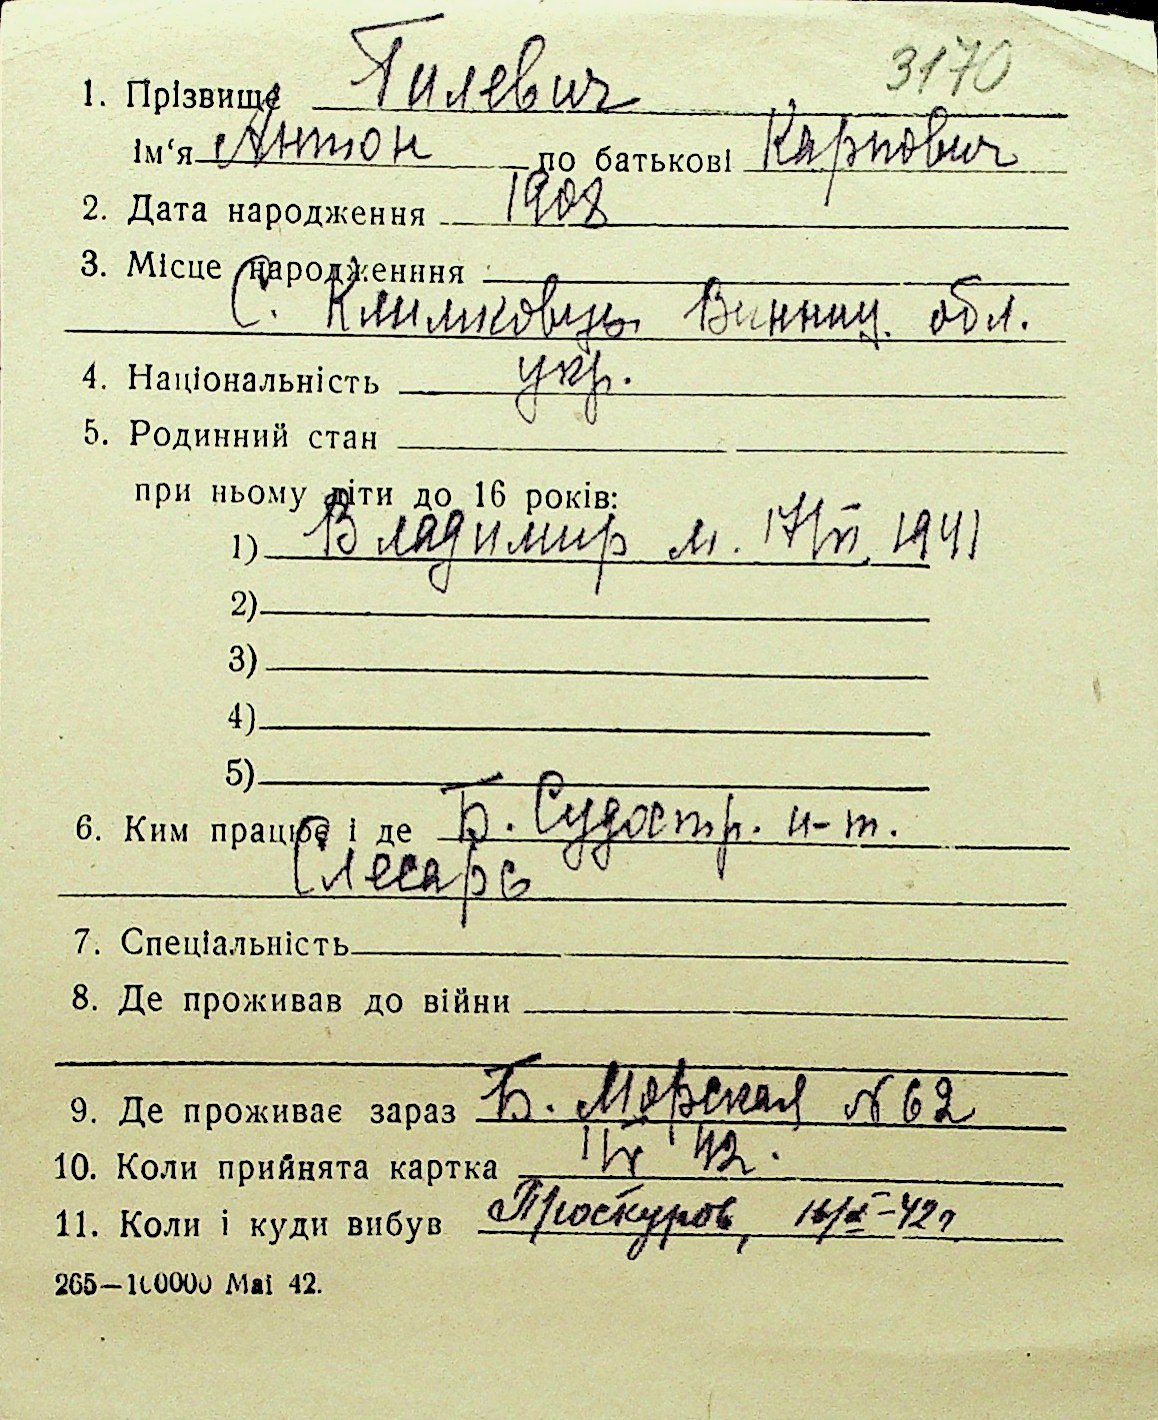 3170
1. Прізвище Гилевич
ім‘я Антон по батькові Карпович
2. Дата народження 1908
3. Місце народженння
С. Климковцы Винниц. обл.
4. Національність укр.
5. Родинний стан
при ньому діти до 16 років:
1) Владимир м. 17/VI 1941
2)
3)
4)
5)
6. Ким працює і де Б. Судостр. и-т.
Слесарь
7. Спеціальність
8. Де проживав до війни
9. Де проживає зараз Б. Морская № 62
10. Коли прийнята картка 42.
11. Коли і куди вибув Проскуров, 42г
265—100000 Mai 42.